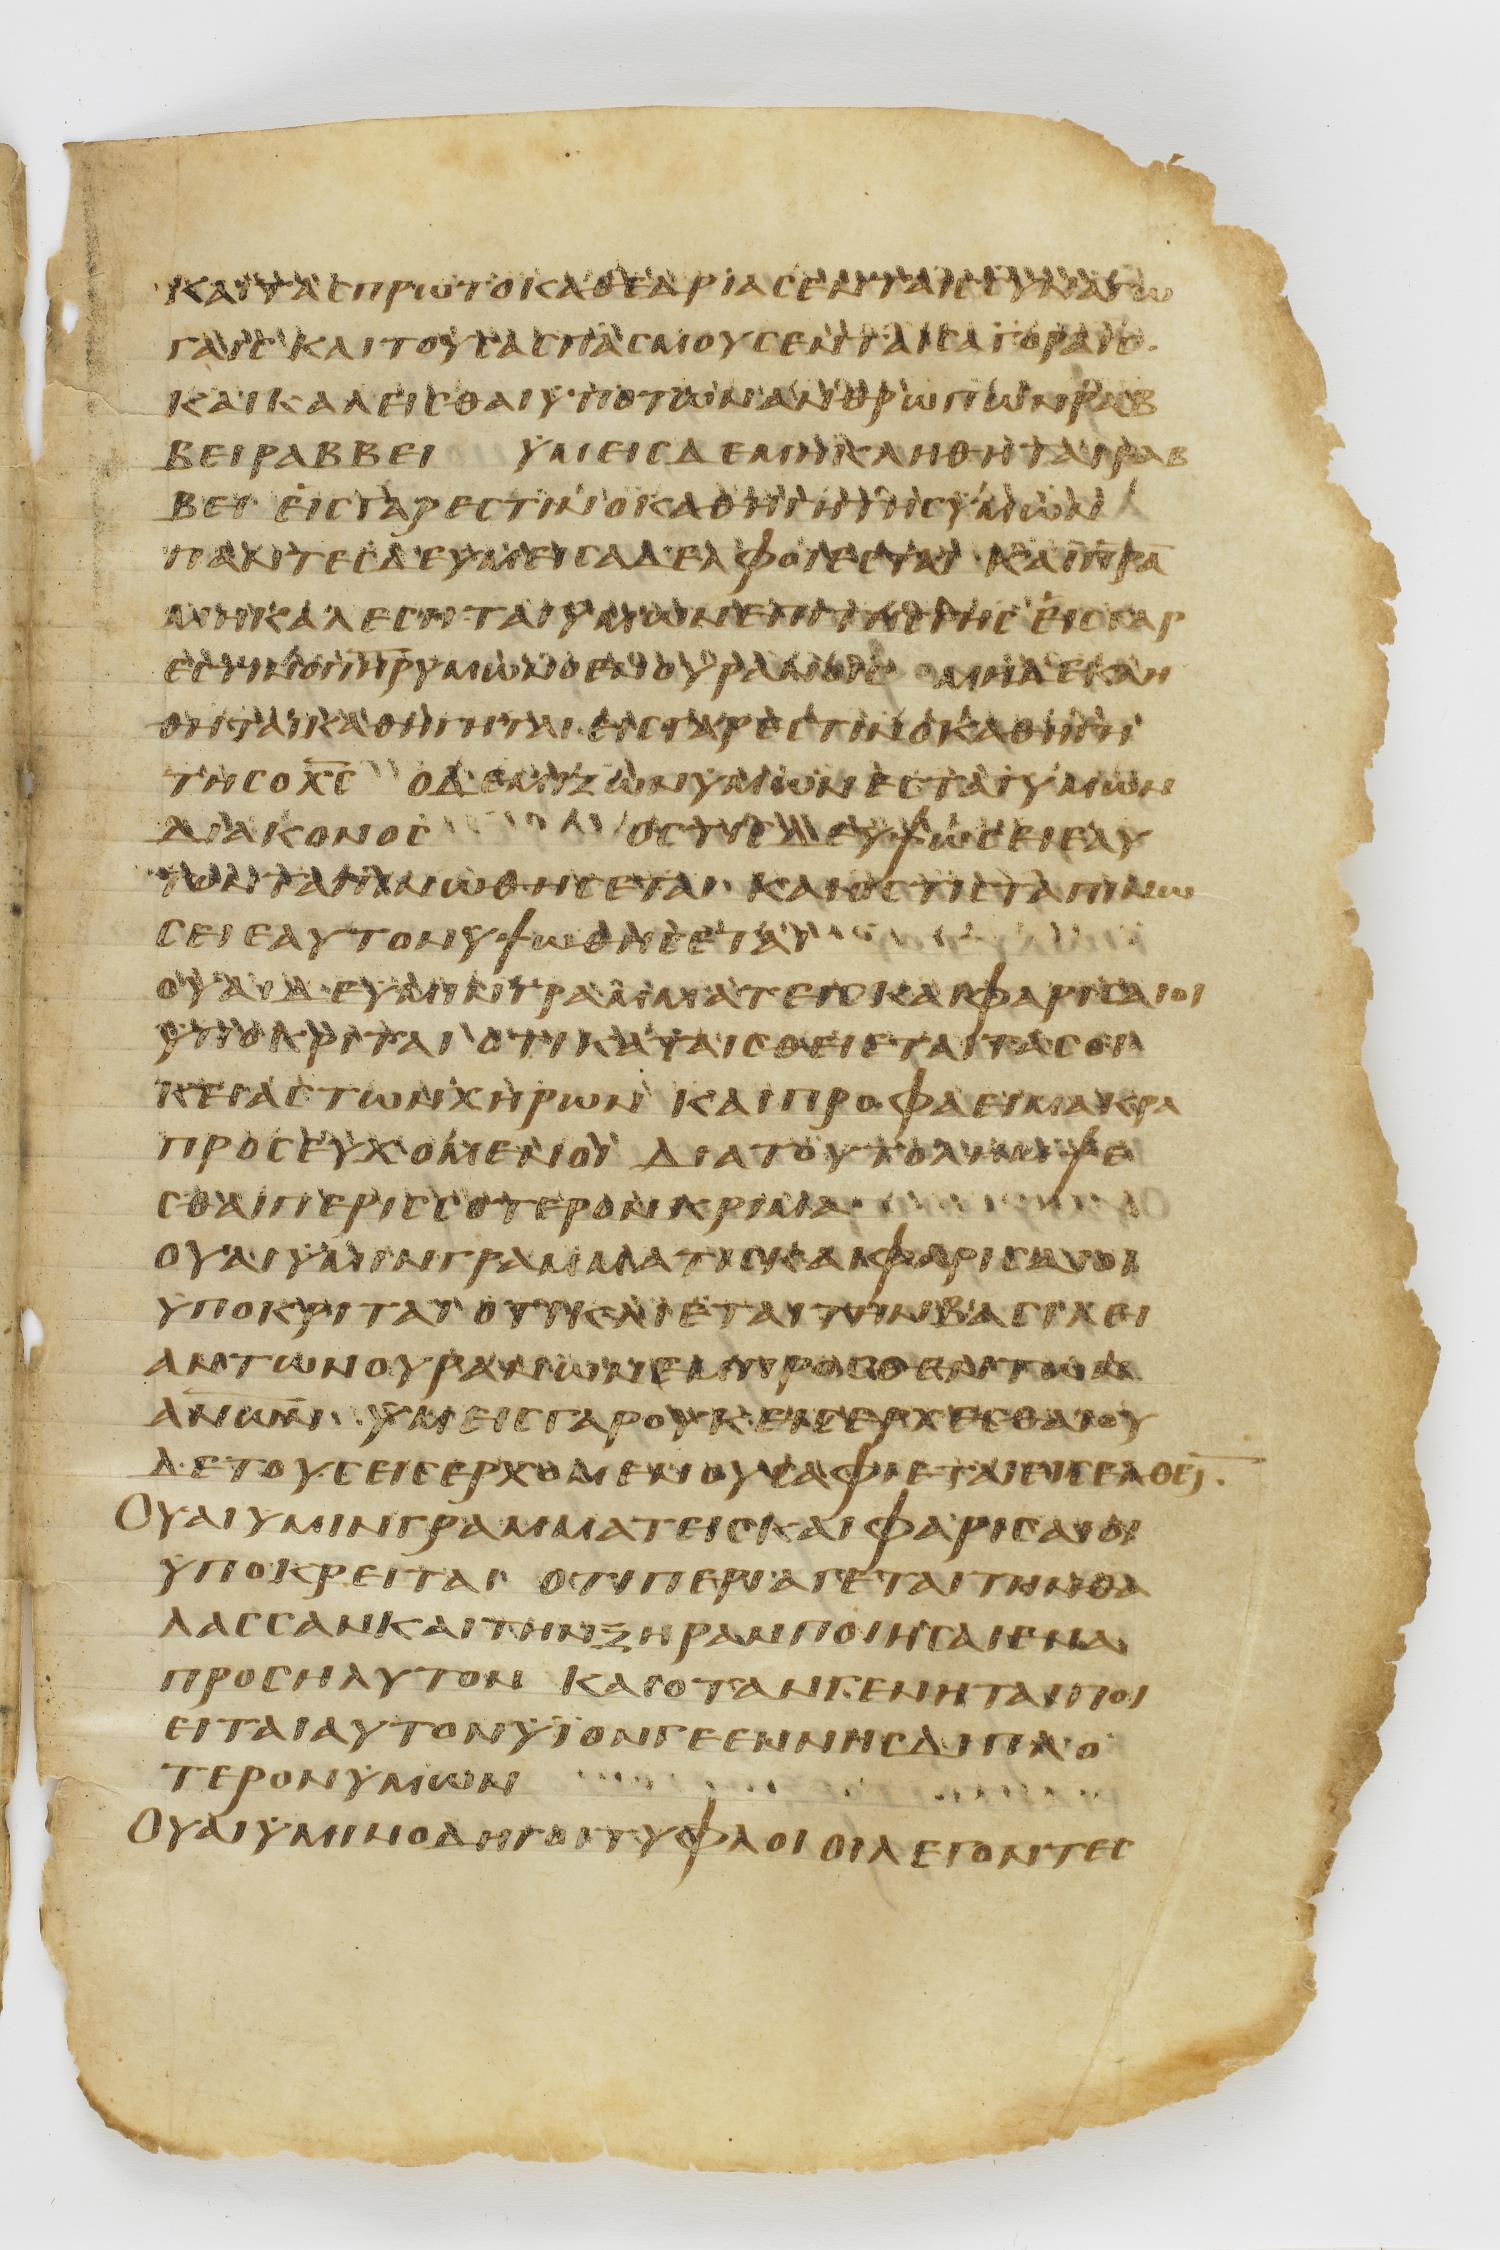 ΚΑΙ ΤΑC ΠΡωΤΟΚΑΘΕΔΡΙΑC ΕΝ ΤΑΙC CΥΝΑΓω
ΓΑΙC ΚΑΙ ΤΟΥC ΑCΠΑCΜΟΥC ΕΝ ΤΑΙC ΑΓΟΡΑΙC
ΚΑΙ ΚΑΛΕΙCΘΑΙ ΥΠΟ ΤωΝ ΑΝΘΡωΠωΝ ΡΑΒ
ΒΕΙ ΡΑΒΒΕΙ ΥΜΕΙC ΔΕ ΜΗ ΚΛΗΘΗΤΑΙ ΡΑΒ
ΒΕΙ ΕΙC ΓΑΡ ΕCΤΙΝ Ο ΚΑΘΗΓΗΤΗC ΥΜωΝ
ΠΑΝΤΕC ΔΕ ΥΜΕΙC ΑΔΕΛΦΟΙ ΕCΤΑΙ ΚΑΙ Π̅Ρ̅Α̅
ΜΗ ΚΑΛΕCΗΤΑΙ ΥΜωΝ ΕΠΙ ΤΗC ΓΗC ΕΙC ΓΑΡ
ΕCΤΙΝ Ο Π̅Η̅Ρ̅ ΥΜωΝ Ο ΕΝ ΟΥΡΑΝΟΙC ΜΗΔΕ ΚΛΗ
ΘΗΤΑΙ ΚΑΘΗΓΗΤΑΙ ΕΙC ΓΑΡ ΕCΤΙΝ Ο ΚΑΘΗΓΗ
ΤΗC Ο Χ̅C̅ Ο ΔΕ ΜΙΖωΝ ΥΜωΝ ΕCΤΑΙ ΥΜωΝ
ΔΙΑΚΟΝΟC ΟCΤΙC ΔΕ ΥΨωCΕΙ ΕΑΥ
ΤΟΝ ΤΑΠΙΝωΘΗCΕΤΑΙ ΚΑΙ ΟCΤΙC ΤΑΠΙΝω
CΕΙ ΕΑΥΤΟΝ ΥΨωΘΗCΕΤΑΙ
ΟΥΑΙ ΔΕ ΥΜΙΝ ΓΡΑΜΜΑΤΕΙC ΚΑΙ ΦΑΡΙCΑΙΟΙ
ΥΠΟΚΡΙΤΑΙ ΟΤΙ ΚΑΤΑΙCΘΕΙΕΤΑΙ ΤΑC ΟΙ
ΚΕΙΑC ΤωΝ ΧΗΡωΝ ΚΑΙ ΠΡΟΦΑCΕΙ ΜΑΚΡΑ
ΠΡΟCΕΥΧΟΜΕΝΟΙ ΔΙΑ ΤΟΥΤΟ ΛΗΜΨΕ
CΘΑΙ ΠΕΡΙCCΟΤΕΡΟΝ ΚΡΙΜΑ
ΟΥΑΙ ΥΜΙΝ ΓΡΑΜΜΑΤΙC ΚΑΙ ΦΑΡΙCΑΙΟΙ
ΥΠΟΚΡΙΤΑΙ ΟΤΙ ΚΛΙΕΤΑΙ ΤΗΝ ΒΑCΙΛΕΙ
ΑΝ ΤωΝ ΟΥΡΑΝωΝ ΕΜΠΡΟCΘΕΝ ΤωΝ
Α̅Ν̅ω̅Ν̅ ΥΜΕΙC ΓΑΡ ΟΥΚ ΕΙCΕΡΧΕCΘΑΙ ΟΥ
ΔΕ ΤΟΥC ΕΙCΕΡΧΟΜΕΝΟΥC ΑΦΙΕΤΑΙ ΕΙCΕΛΘΕΙ̅
ΟΥΑΙ ΥΜΙΝ ΓΡΑΜΜΑΤΕΙC ΚΑΙ ΦΑΡΙCΑΙΟΙ
ΥΠΟΚΡΕΙΤΑΙ ΟΤΙ ΠΕΡΙΑΓΕΤΑΙ ΤΗΝ ΘΑ
ΛΑCCΑΝ ΚΑΙ ΤΗΝ ΞΗΡΑΝ ΠΟΙΗCΑΙ ΕΝΑ
ΠΡΟCΗΛΥΤΟΝ ΚΑΙ ΟΤΑΝ ΓΕΝΗΤΑΙ ΠΟΙ
ΕΙΤΑΙ ΑΥΤΟΝ ΥΙΟΝ ΓΕΕΝΝΗC ΔΙΠΛΟ
ΤΕΡΟΝ ΥΜωΝ
ΟΥΑΙ ΥΜΙΝ ΟΔΗΓΟΙ ΤΥΦΛΟΙ ΟΙ ΛΕΓΟΝΤΕC